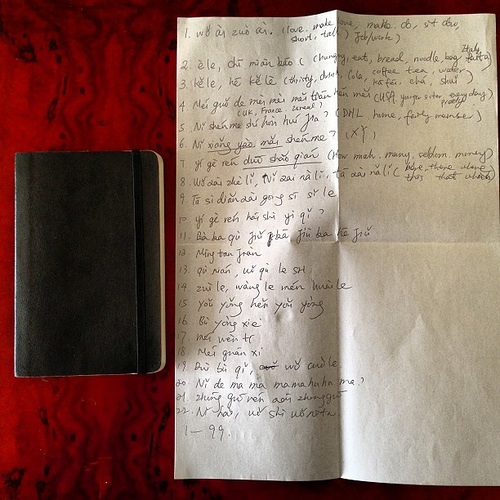 1. wǒ ài zuò ài. (love, make love, make do, sit down,
short, tall) Job/work)
2. è le, chī miàn bāo (hungry, eat, bread, noodle, bag
3. kě le, hē kě lè (thirsty, drink, cola, coffee tea, water
kā fēi, chá, shuǐ
4. Měi guó de mèi mei měi tiān hěn měi (USA younger sister everyday
pretty)
(UK, France
5. Nǐ shénme shí hòu huí jiā? (DHL home, family member)
6. Nǐ xiǎng yào mǎi shénme? (XY)
7. yí gè rén duō shǎo qián (How much, many, seldom, money)
8. Wǒ zài zhè lǐ, Nǐ zài nà lǐ, tā zài nǎ lǐ (here, there, where
this that which)
9. Tā sì diǎn zài gōng sī sǐ le
10. yí gè rén hái shì yì qǐ?
11. Bā bǎ jiǔ bā jiǔ
12. Míng tiān jiàn
13. qù nán, wǒ qù le SH
14. zuì le, wàng le mén
15. Yòu yòng hěn yǒu yòng
16. Bú yòng xiè
17. méi wèn tí
18. Méi guān xi
19. Duì bù qǐ, wǒ cuò le
20. Nǐ de mā ma mamahuhu ma?
21. zhōng guó rén ài zhōng guó
22. Nǐ hǎo, wǒ shì
1 — 99.